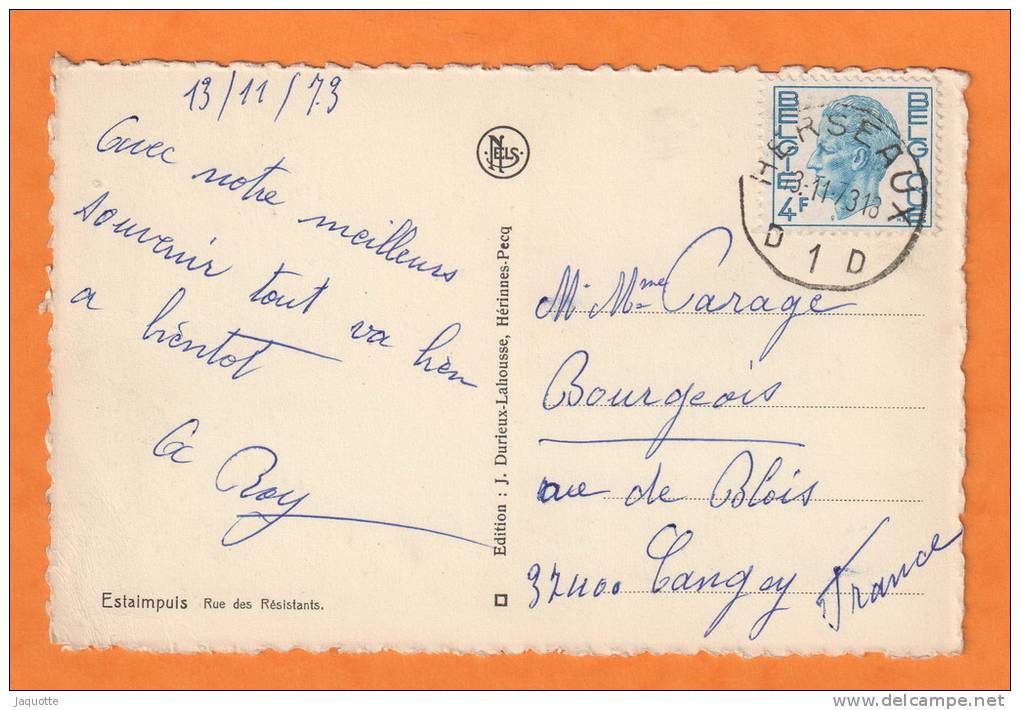 13/11/73
Avec notre meilleurs
souvenir tout va bien
a bièntot
A Roy
Estaimpuis Rue des Résistants.
NELS
Edition : J. Durieux-Lahousse, Hérinnes-Pecq
BELGIE BELGIQUE
4F
HERSEAUX
13-11-7318
D 1 D
M. Mme Carage
Bourgeois
rue de Blois
37400 Cangey
France
Jaquotte
www.delcampe.net